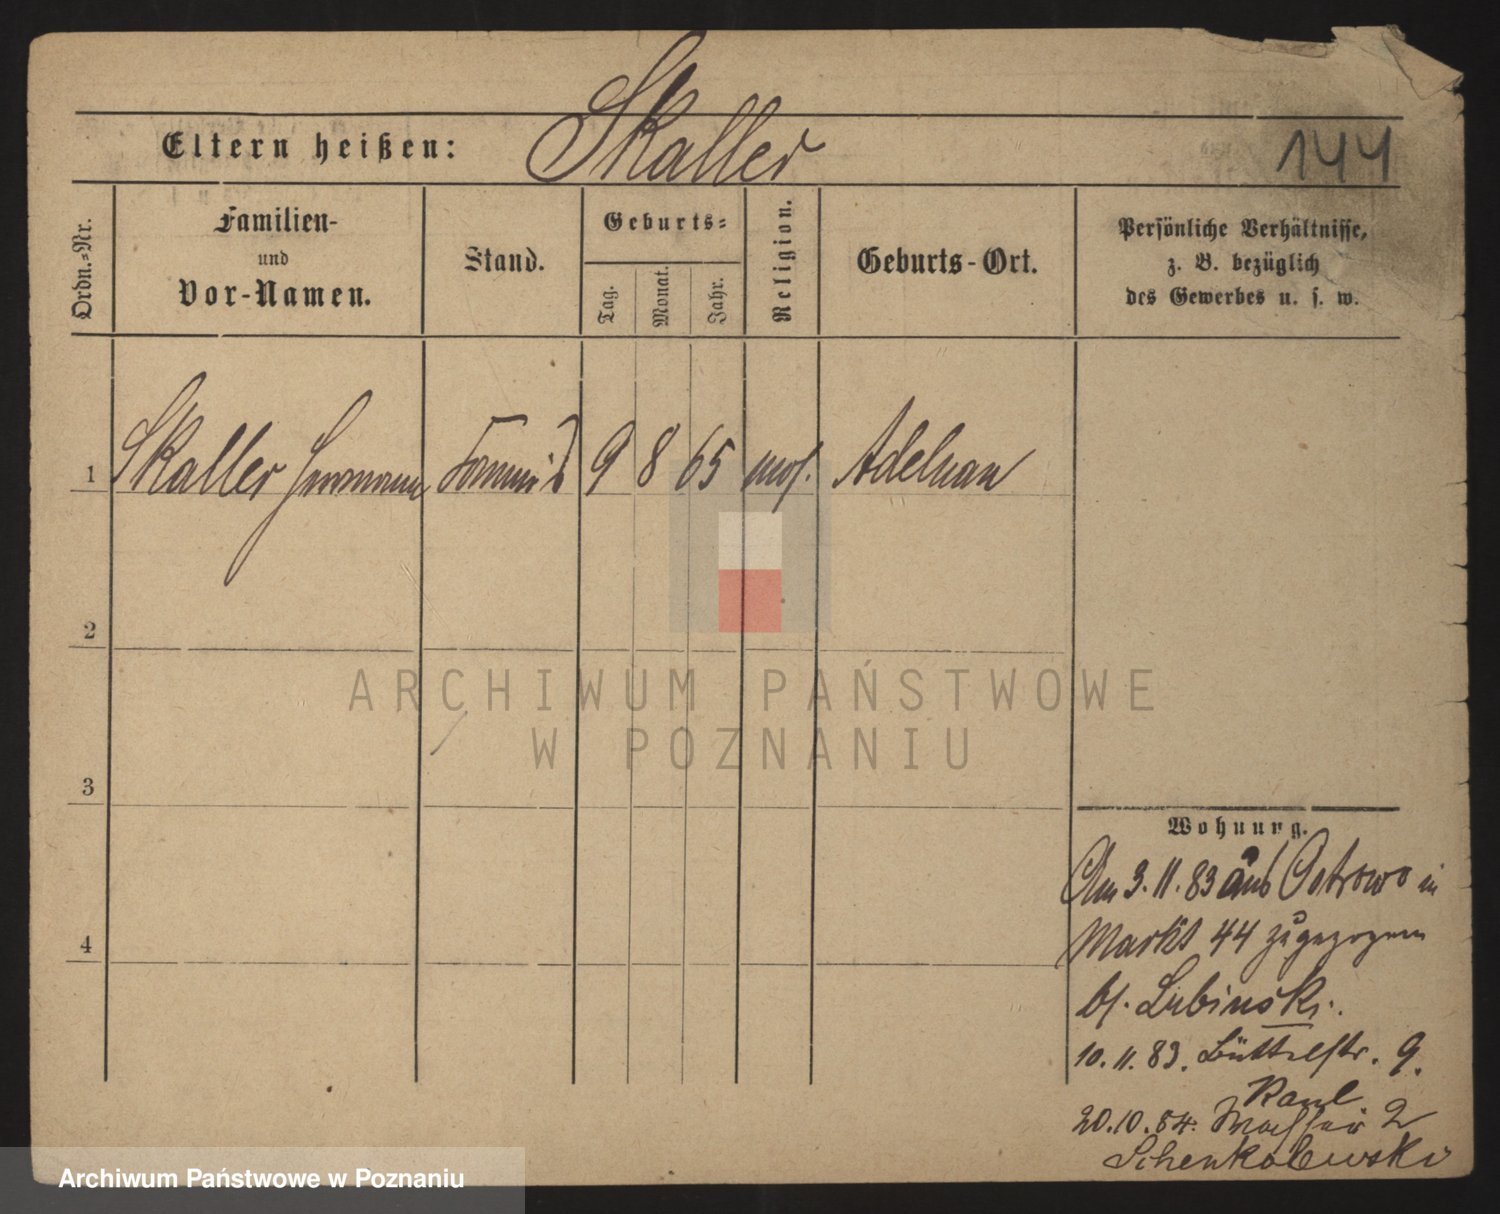 Skaller
Eltern heißen:
144
Ordn.-Nr.
Familien-
und
Vor-Namen.
Stand.
Geburts-
Tag.
Monat.
Jahr.
Religion.
Geburts-Ort.
Persönliche Verhältnisse,
z. B. bezüglich
des Gewerbes u. s. w.
1 Skaller Hermann Commis 9 8 65 mos. Adelnau
2
3
4
ARCHIWUM PAŃSTWOWE
W POZNANIU
Wohnung.
Am 3. 11. 83 aus Ostrowo in
Markt 44 zugezogen
bei Lubinski.
10. 11. 83. Büttelstr. 9.
20. 10. 84. Wasserstr 2
Schenkolewski
Archiwum Państwowe w Poznaniu